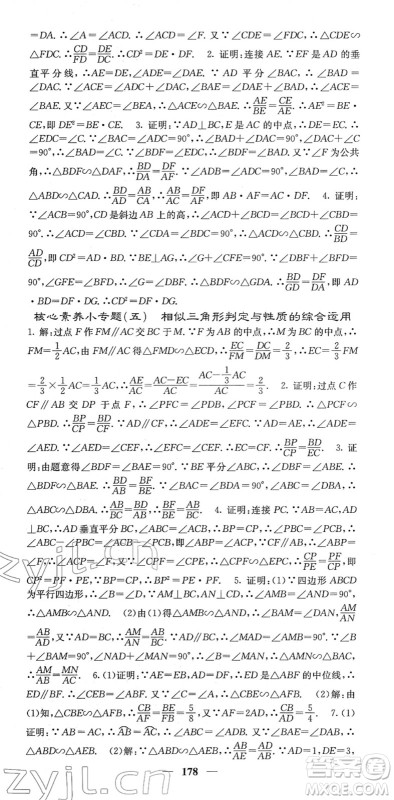 =DA. ∴∠A=∠ACD. ∴∠ACD=∠F. 又∵∠FDC=∠CDE, ∴△CDE∽
△FDC. ∴CD/FD=DE/DC. ∴CD²=DE·DF. 2. 证明: 连接 AE. ∵EF 是 AD 的垂
直平分线, ∴AE=DE, ∠ADE=∠DAE. ∵AD 平分∠BAC, ∴∠BAD=
∠DAC. ∵∠ACE=∠ADC+∠DAC, ∠BAE=∠BAD+∠DAE, ∴∠ACE
=∠BAE. 又∵∠AEC=∠BEA, ∴△ACE∽△BAE. ∴AE/BE=CE/AE. ∴AE²=BE·
CE. ∴DE²=BE·CE. 3. 证明: ∵AD⊥BC, E 是 AC 的中点, ∴DE=EC. ∴
∠EDC=∠C. ∵∠BAC=∠ADC=90°, ∴∠BAD+∠DAC=∠DAC+∠C
=90°, ∴∠BAD=∠C. ∵∠BDF=∠EDC, ∴∠BDF=∠BAD. 又∵∠F 为公共
角, ∴△BDF∽△DAF. ∴BD/DA=DF/AF. ∵∠ADB=∠CAB=90°, ∠BAD=∠C,
∴△ABD∽△CAD. ∴BD/AD=AB/CA, ∴AB/AC=DF/AF, 即 AB·AF=AC·DF. 4. 证明:
∵∠ACB=90°, CD 是斜边 AB 上的高, ∴∠ACD+∠BCD=∠BCD+∠CBD=
90°. ∴∠ACD=∠CBD. 又∵∠ADC=∠CDB=90°, ∴△ACD∽△CBD. ∴
AD/CD=CD/BD, 即 CD²=AD·BD. ∵BE⊥AG, ∴∠GEF=∠BDF=90°. ∵∠G+∠GFE=
90°, ∠GFE=∠BFD, ∴∠G=∠DBF. ∴△BDF∽△GDA. ∴BD/GD=DF/DA, 即 AD
·BD=DF·DG. ∴CD²=DF·DG.
核心素养小专题(五) 相似三角形判定与性质的综合运用
1. 解: 过点 F 作 FM∥AC 交 BC 于 M. ∵F 为 AB 的中点, ∴M 为 BC 的中点, ∴
FM=1/2AC; 由 FM∥AC 得△FMD∽△ECD, ∴EC/FM=DC/DM=2/3, ∴EC=2/3FM
=2/3×1/2AC=1/3AC, ∴AE/AC=AC-EC/AC=AC-1/3AC/AC=2/3. 2. 证明: 过点 C 作
CF∥AB 交 DP 于点 F, ∴∠PFC=∠PDB, ∠PCF=∠PBD. ∴△PCF∽△PBD.
∴BP/CP=BD/CF. ∵AD∥CF, ∴∠ADE=∠EFC. ∵AD=AE, ∴∠ADE=∠AED.
∵∠AED=∠CEF, ∴∠EFC=∠CEF. ∴EC=CF. ∴BP/CP=BD/EC. 3. 证
明: 由题意得∠BDF=∠BAE=90°. ∵BE 平分∠ABC, ∴∠DBF=∠ABE.
∴△BDF∽△BAE. ∴BD/AB=BF/BE. ∵∠BAC=∠BDA=90°, ∠ABC=∠DBA.
∴△ABC∽△DBA. ∴BD/AB=AB/BC, ∴BF/BE=AB/BC. 4. 证明: 连接 PC. ∵AB=AC,
∴AD 垂直平分 BC, ∠ABC=∠ACB, ∴BP=CP. ∴∠PBC=∠PCB. ∴∠ABC
-∠PBC=∠ACB-∠PCB, 即∠ABP=∠ACP. ∵CF∥AB, ∴∠ABP=∠F,
∴∠ACP=∠F. 又∵∠CPF=∠CPE, ∴△CPF∽△EPC. ∴CP/PE=PF/CP, 即
CP²=PF·PE. ∵BP=CP, ∴BP²=PE·PF. 5. 证明: (1)∵四边形 ABCD
为平行四边形, ∴∠B=∠D. ∵AM⊥BC, AN⊥CD, ∴∠AMB=∠AND=90°,
∴△AMB∽△AND. (2)由(1)得△AMB∽△AND, ∠BAM=∠DAN, AM/AN
=AB/AD. 又∵AD=BC, ∴AM/AN=AB/BC. ∵AD∥BC, ∴∠AMB=∠MAD=90°. ∵∠B
+∠BAM=90°, ∠NAD+∠MAN=90°, ∴∠B=∠MAN. ∴△ABC∽△MAN.
∴AB/AM=MN/AC. 6. (1)证明: ∵AE=EB, AD=DF, ∴ED 是△ABF 的中位线, ∴
ED∥BF. ∴∠CEB=∠ABF. 又∵∠C=∠A, ∴△CBE∽△AFB. (2)解: 由
(1)知, △CBE∽△AFB, ∴CB/AF=BE/FB=5/8, 又 AF=2AD, ∴CB/AD=5/4. 7. (1)
证明: ∵AB=AC, ∴AB=AC, ∴∠ABC=∠ADB. 又∵∠BAE=∠DAB,
∴△ABE∽△ADB. (2)解: ∵△ABE∽△ADB, ∴AB/AD=AE/AB. ∵AD=1, DE=3,
178
zyjl.cn
zyjl.cn